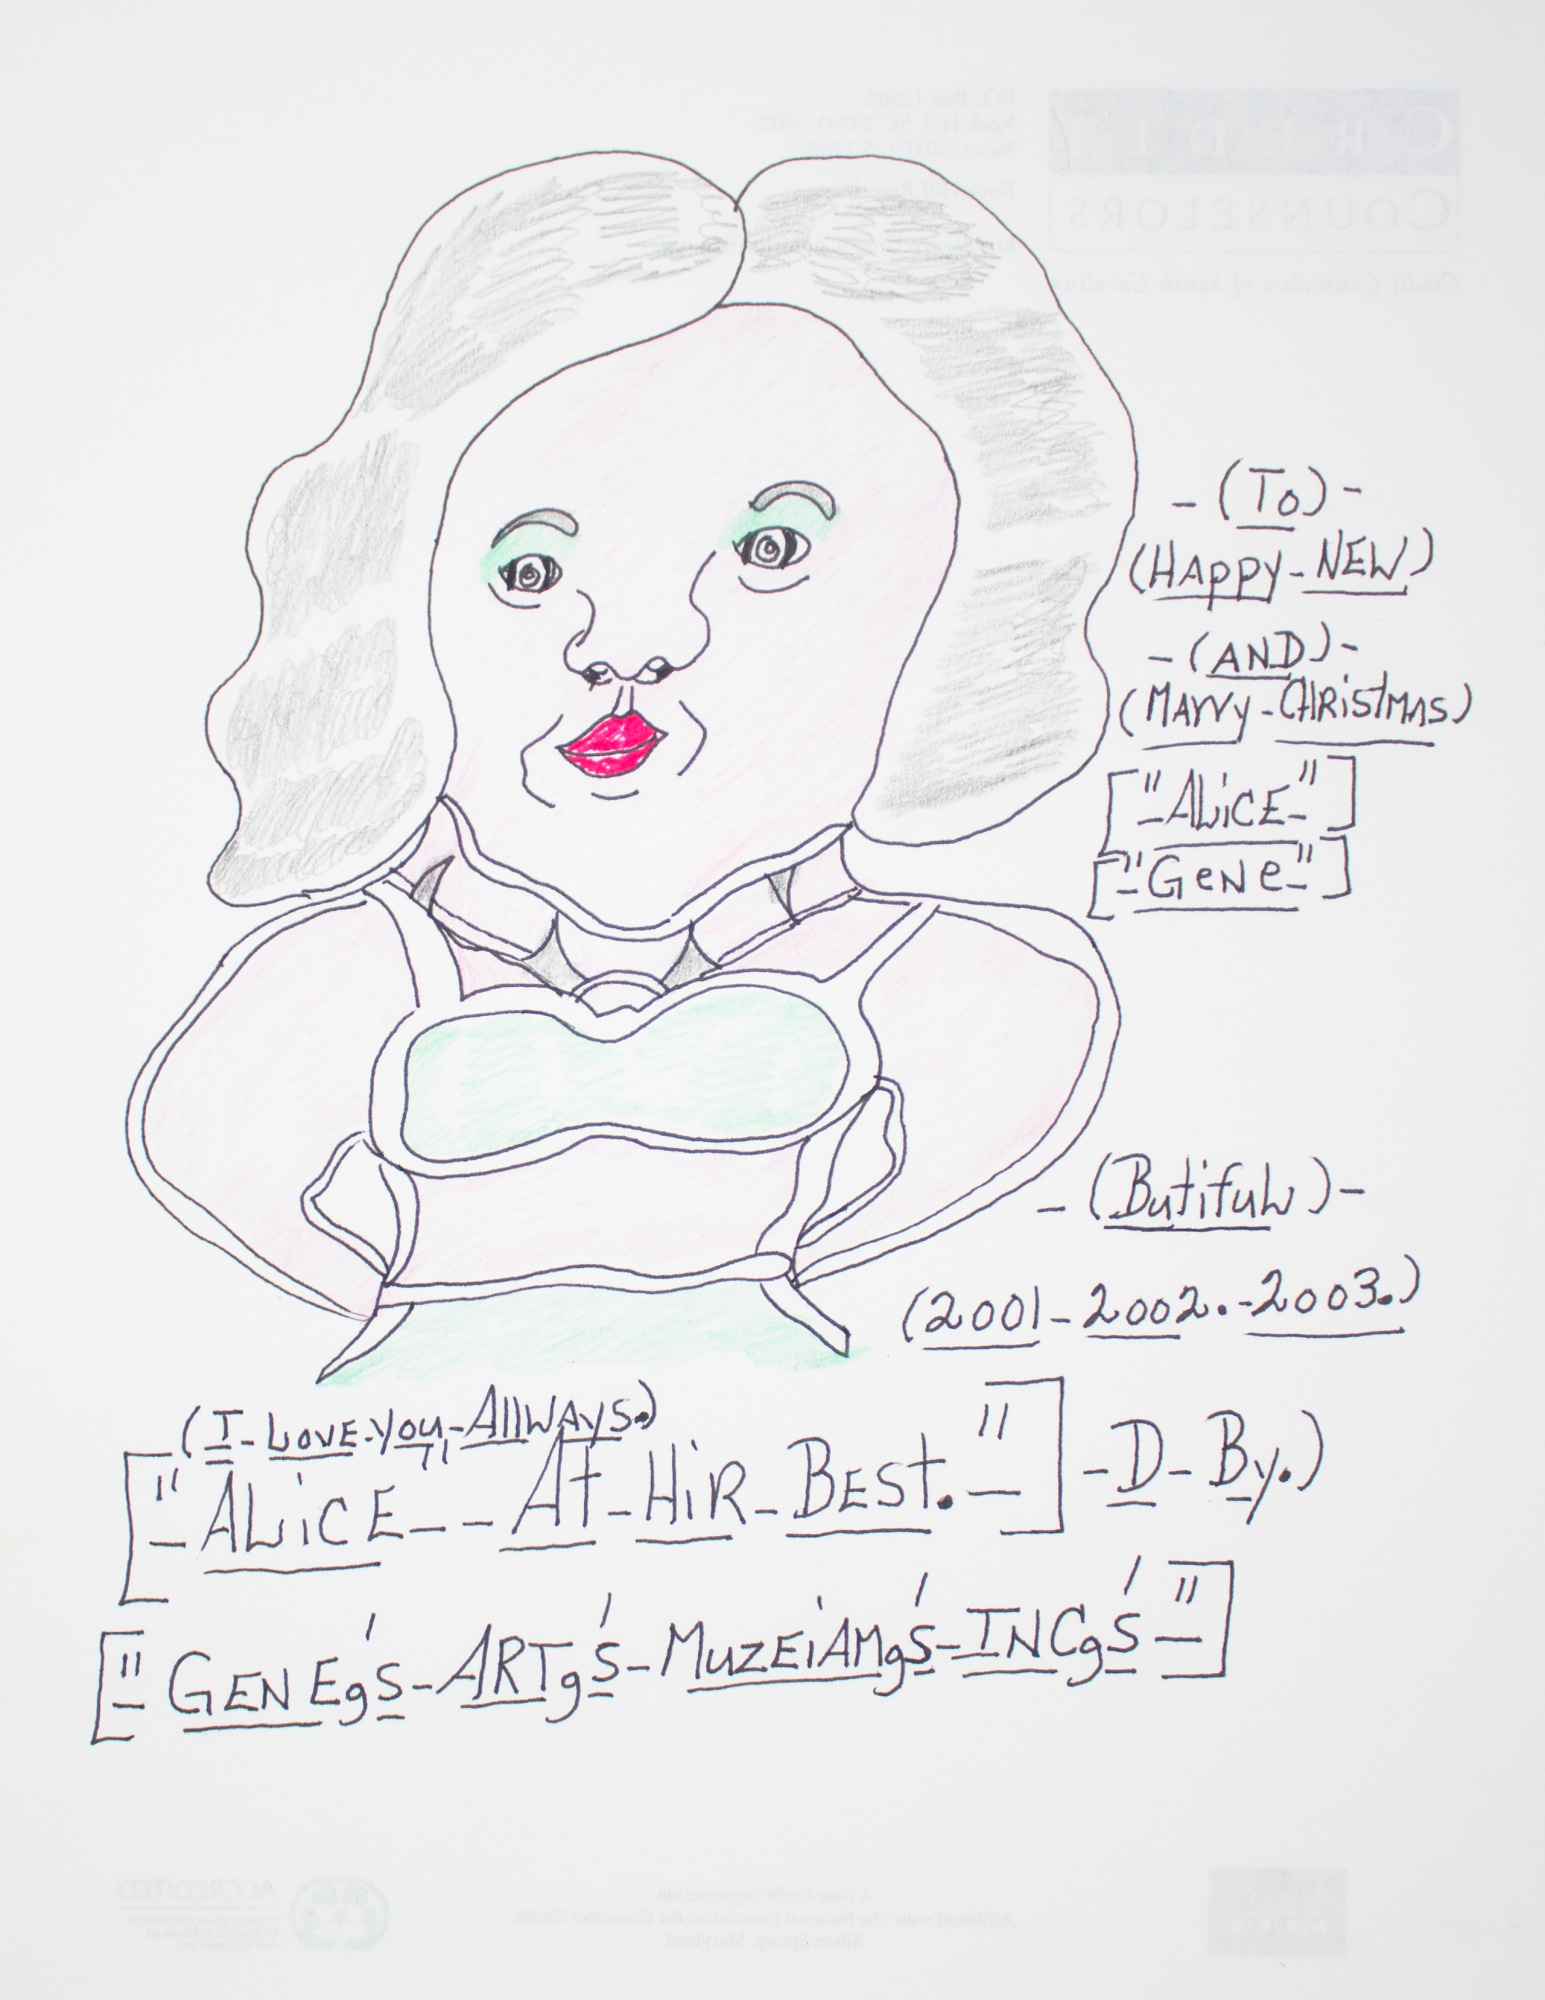 -(To)-
(HAppy-NEW)
-(AND)-
(MArry-CHRistmas)
["-ALiCE-"]
["-GeNe-"]
-(Butiful)-
(2001-2002.-2003.)
(I-LOVE-you-AllWAys.)
["-ALiCE--At-HiR-BEst.-"]-D-By.)
["-GENEg's-ARTg's-MuzEiAMg's-INCg's-"]
CREDIT
COUNSELORS
Credit Counselors of South Carolina
P.O. Box 12502
Rock Hill, SC 29731-0502
ACCREDITED
A Non-Profit Organization
Affiliated with The National Foundation for Consumer Credit
Silver Spring, Maryland